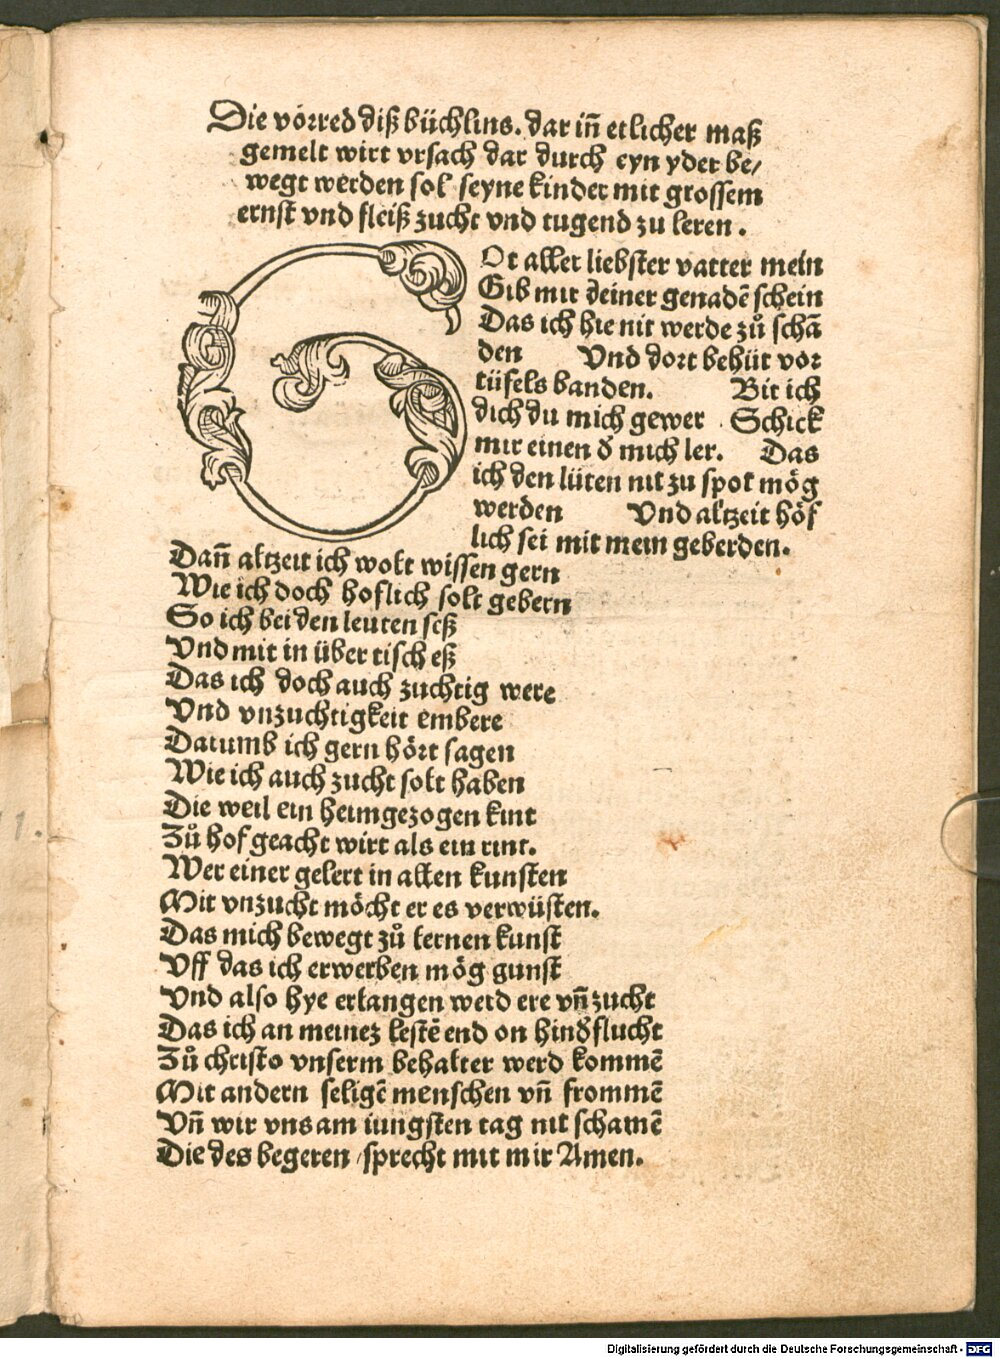 Die vorred diß büchlins. dar iñ etlicher maß
gemelt wirt vrsach dar durch eyn yder be/
wegt werden sol seyne kinder mit grossem
ernst vnd fleiß zucht vnd tugend zu leren.
GOt aller liebster vatter mein
Gib mir deiner genadē schein
Das ich hie nit werde zů schā
den Vnd dort behüt vor
tüfels banden. Bit ich
dich du mich gewer Schick
mir einen d̄ mich ler. Das
ich den lüten nit zu spot mög
werden Vnd altzeit höf
lich sei mit mein geberden.
Dañ altzeit ich wolt wissen gern
Wie ich doch hoflich solt gebern
So ich bei den leuten seß
Vnd mit in über tisch eß
Das ich doch auch zuchtig were
Vnd vnzuchtigkeit embere
Darumb ich gern hört sagen
Wie ich auch zucht solt haben
Die weil ein heimgezogen kint
Zů hof geacht wirt als ein rint.
Wer einer gelert in allen kunsten
Mit vnzucht möcht er es verwüsten.
Das mich bewegt zů lernen kunst
Vff das ich erwerben mög gunst
Vnd also hye erlangen werd ere vñ zucht
Das ich an meinez lestē end on hind̄flucht
Zů christo vnserm behalter werd kommē
Mit andern seligē menschen vñ frommē
Vñ wir vns am iungsten tag nit schamē
Die des begeren / sprecht mit mir Amen.
11.
Digitalisierung gefördert durch die Deutsche Forschungsgemeinschaft - DFG